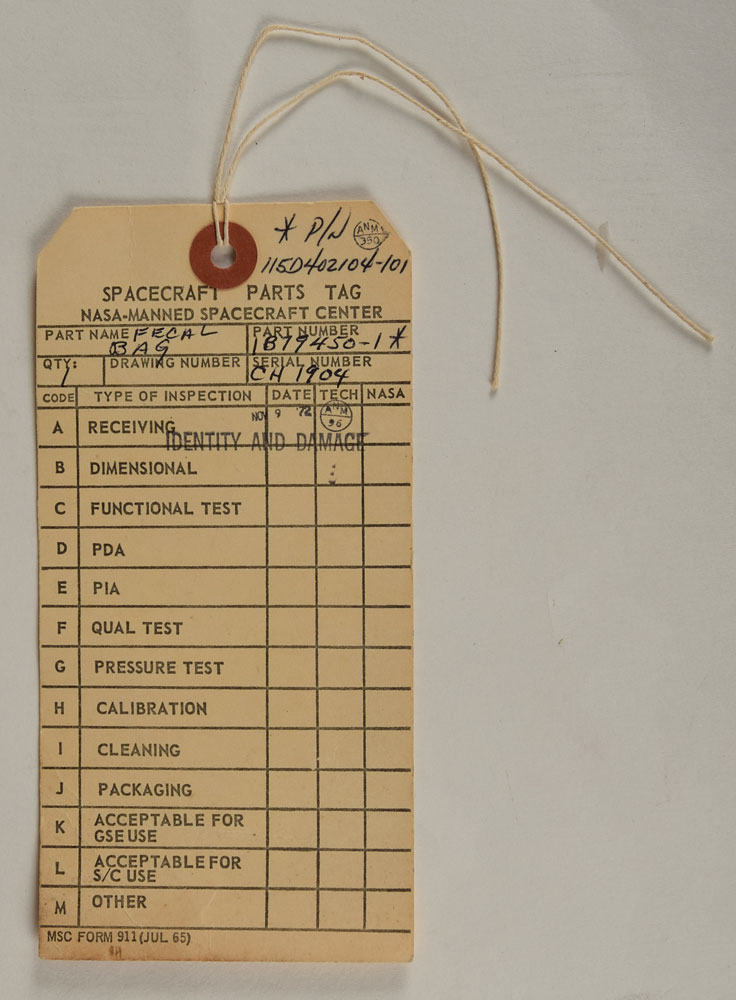 * P/N ANM 350
115D402104-101
SPACECRAFT PARTS TAG
NASA-MANNED SPACECRAFT CENTER
PART NAME FECAL BAG
PART NUMBER 1B79450-1 *
QTY: 1
DRAWING NUMBER
SERIAL NUMBER CH 1904
CODE TYPE OF INSPECTION DATE TECH NASA
A RECEIVING NOV 9 '72 ANM 96
IDENTITY AND DAMAGE
B DIMENSIONAL
C FUNCTIONAL TEST
D PDA
E PIA
F QUAL TEST
G PRESSURE TEST
H CALIBRATION
I CLEANING
J PACKAGING
K ACCEPTABLE FOR
GSE USE
L ACCEPTABLE FOR
S/C USE
M OTHER
MSC FORM 911 (JUL 65)